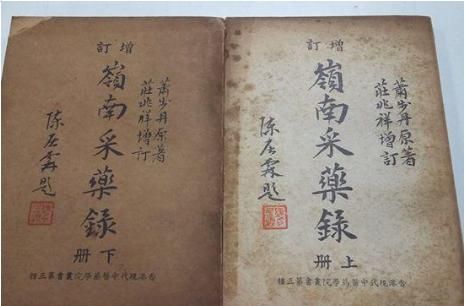 增訂
蕭步丹原著
莊兆祥增訂
嶺南采藥錄
下冊
陳居霖題
香港現代中醫藥學院叢書第三種
增訂
蕭步丹原著
莊兆祥增訂
嶺南采藥錄
上冊
陳居霖題
香港現代中醫藥學院叢書第三種